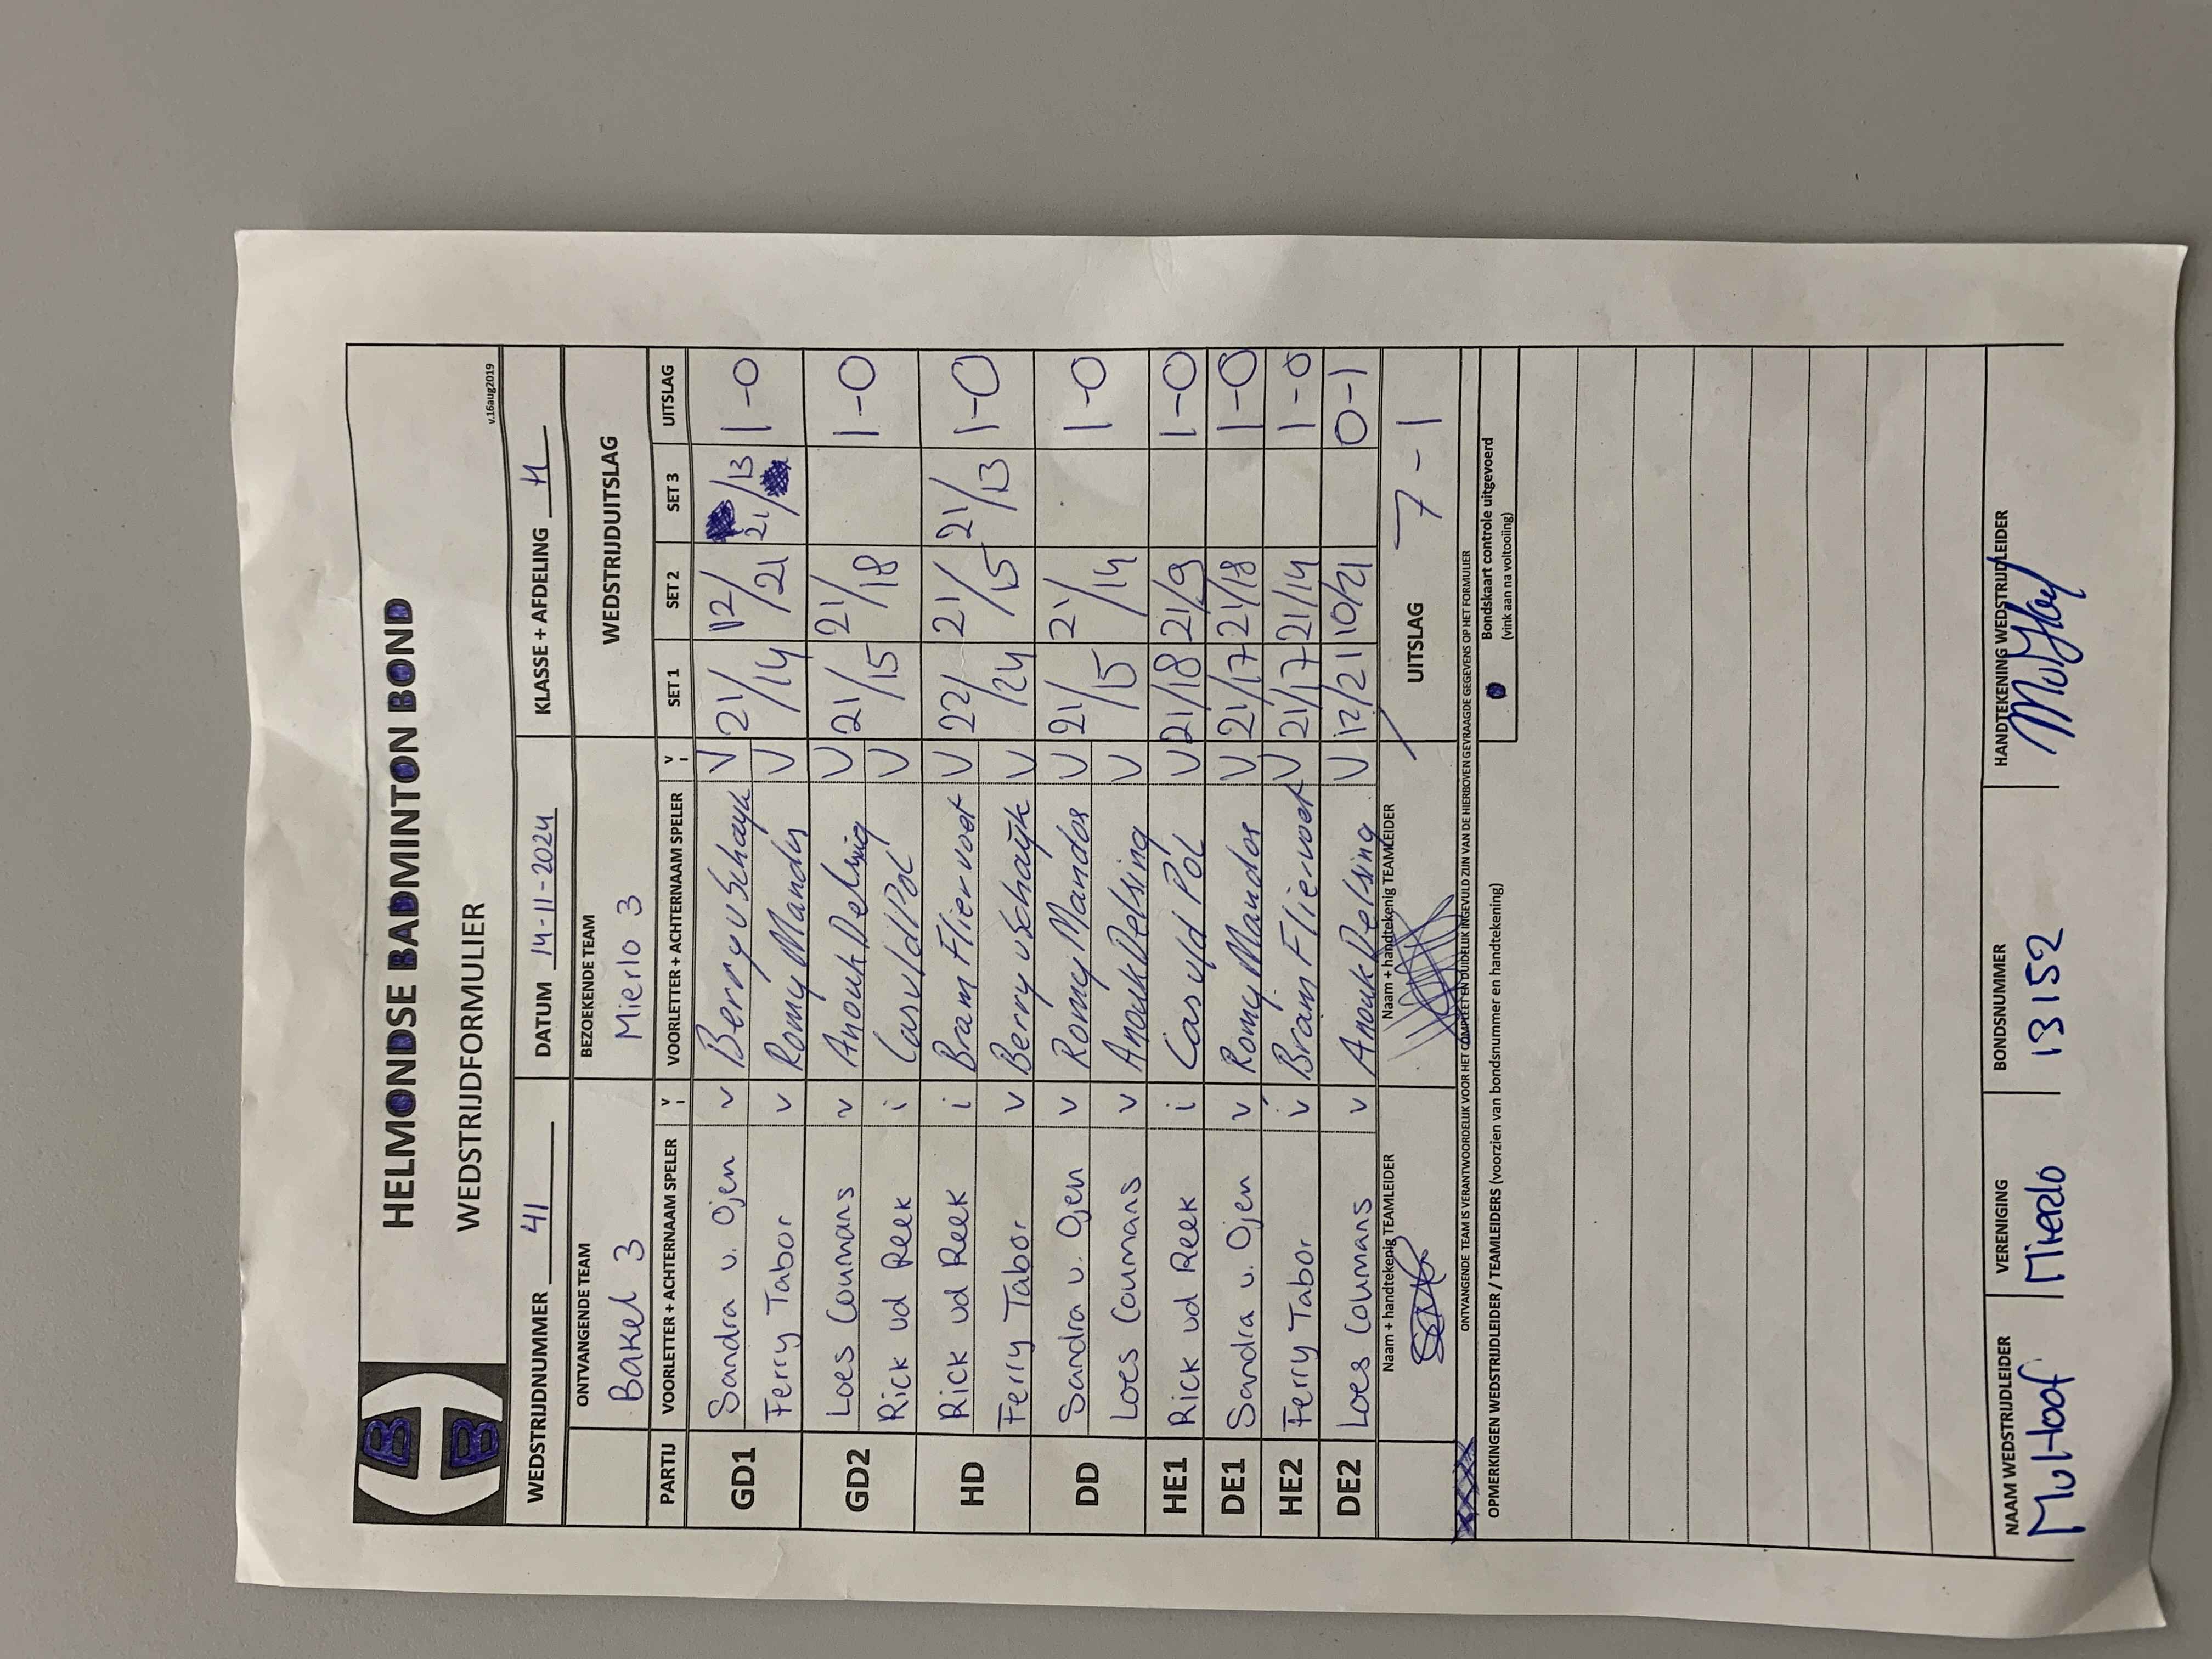 HELMONDSE BADMINTON BOND
WEDSTRIJDFORMULIER
v.16aug2019
WEDSTRIJDNUMMER 41 DATUM 14-11-2024 KLASSE + AFDELING H
ONTVANGENDE TEAM BEZOEKENDE TEAM WEDSTRIJDUITSLAG
Bakel 3 Mierlo 3
PARTIJ VOORLETTER + ACHTERNAAM SPELER V I VOORLETTER + ACHTERNAAM SPELER V I SET 1 SET 2 SET 3 UITSLAG
GD1 Sandra v. Ojen v Berry v Schayk V 21/14 12/21 21/13 1-0
Ferry Tabor v Romy Mandos V
GD2 Loes Coumans v Anouk Delsing V 21/15 21/18 1-0
Rick vd Reek i Cas vld Pol V
HD Rick vd Reek i Bram Fliervoet V 22/24 21/15 21/13 1-0
Ferry Tabor v Berry v Schaijk V
DD Sandra v. Ojen v Romy Mandos V 21/15 21/14 1-0
Loes Coumans v Anouk Delsing V
HE1 Rick vd Reek i Cas vld Pol V 21/18 21/9 1-0
DE1 Sandra v. Ojen v Romy Mandos V 21/17 21/18 1-0
HE2 Ferry Tabor v Bram Fliervoet V 21/17 21/14 1-0
DE2 Loes Coumans v Anouk Delsing V 12/21 10/21 0-1
Naam + handtekenig TEAMLEIDER Naam + handtekenig TEAMLEIDER UITSLAG 7-1
ONTVANGENDE TEAM IS VERANTWOORDELIJK VOOR HET COMPLEET EN DUIDELIJK INGEVULD ZIJN VAN DE HIERBOVEN GEVRAAGDE GEGEVENS OP HET FORMULIER
OPMERKINGEN WEDSTRIJDLEIDER / TEAMLEIDERS (voorzien van bondsnummer en handtekening)
Bondskaart controle uitgevoerd
(vink aan na voltooiing)
NAAM WEDSTRIJDLEIDER VERENIGING BONDSNUMMER HANDTEKENING WEDSTRIJDLEIDER
MvtHoof Mierlo 13152